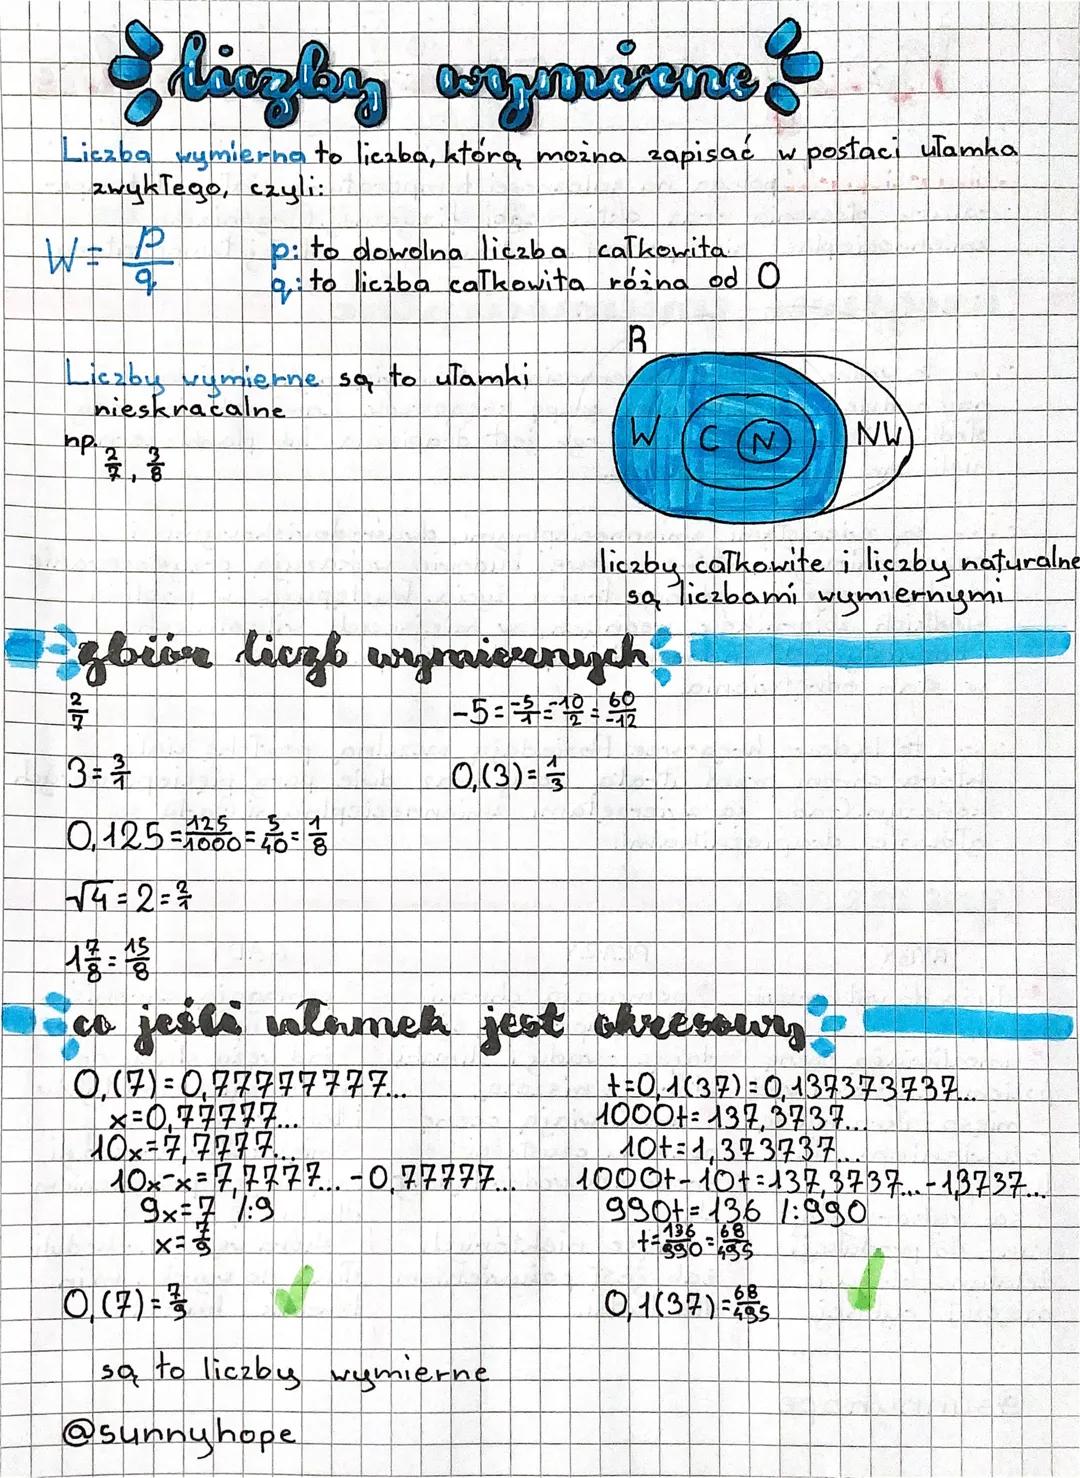 liczby wymierne
Liczba wymierna to liczba, którą można zapisać w postaci ułamka
zwykłego, czyli:
W = p/q
p: to dowolna liczba całkowita
q: to liczba całkowita różna od 0
R
Liczby wymierne są to ułamki
nieskracalne
np. 2/7, 3/8
W C N NW
liczby całkowite i liczby naturalne
są liczbami wymiernymi
zbiór liczb wymiernych
2/7
-5 = -5/1 = -10/2 = 60/-12
3 = 3/1
0,(3) = 1/3
0,125 = 125/1000 = 5/40 = 1/8
√4 = 2 = 2/1
1 7/8 = 15/8
co jeśli ułamek jest okresowy
0,(7) = 0,77777777...
x = 0,77777...
10x = 7,7777...
10x-x = 7,7777... - 0,77777...
9x = 7 /:9
x = 7/9
0,(7) = 7/9
t = 0,1(37) = 0,137373737...
1000t = 137,3737...
10t = 1,373737...
1000t - 10t = 137,3737... - 1,3737...
990t = 136 /:990
t = 136/990 = 68/495
0,1(37) = 68/495
są to liczby wymierne
@sunnyhope